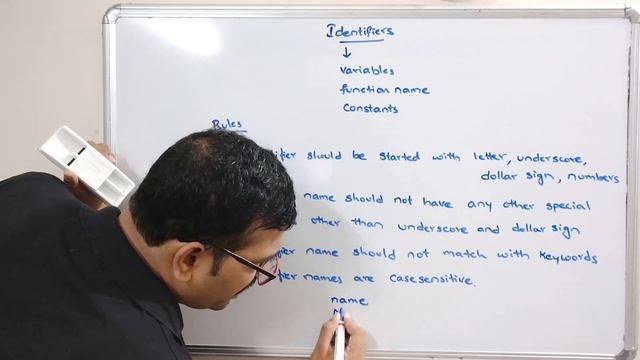 Identifiers
↓
variables
function name
Constants
Rules
should be started with letter, underscore,
dollar sign, numbers
name should not have any other special
other than underscore and dollar sign
name should not match with Keywords
names are Casesensitive.
name
N